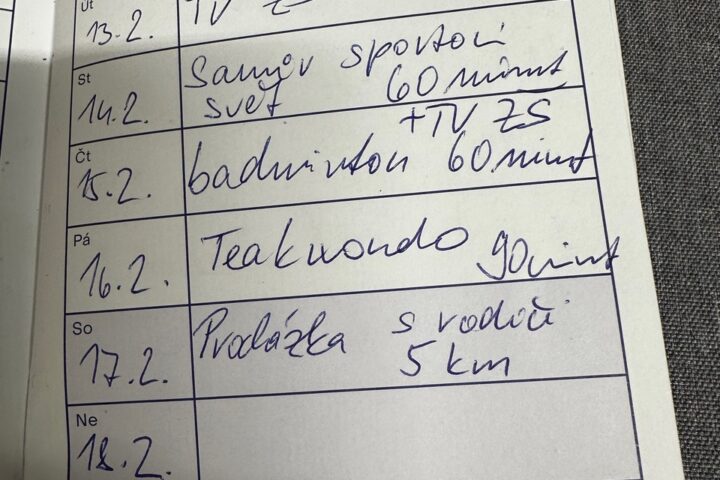 Út
13.2. TV ZŠ
St
14.2. Samův sportovní 60 minut
svět + TV ZŠ
Čt
15.2. badminton 60 minut
Pá
16.2. Teakwondo 90 minut
So
17.2. Procházka s rodiči
5 km
Ne
18.2.